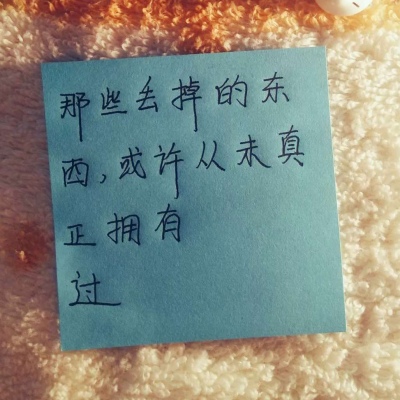 那些丢掉的东
西,或许从未真
正拥有
过